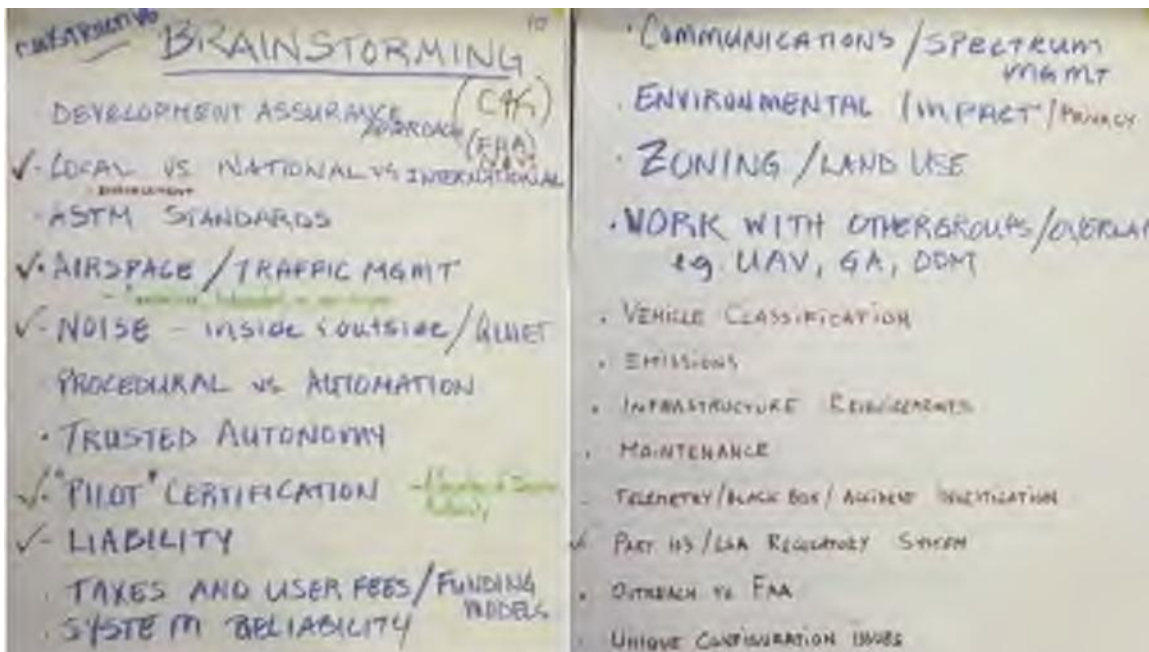 10
BRAINSTORMING
· DEVELOPMENT ASSURANCE (C4K)
APPROACH (FAA)
✓· LOCAL VS NATIONAL VS INTERNATIONAL
· ASTM STANDARDS
✓· AIRSPACE / TRAFFIC MGMT
✓- NOISE - inside & outside / QUIET
PROCEDURAL vs AUTOMATION
· TRUSTED AUTONOMY
✓· "PILOT" CERTIFICATION
✓- LIABILITY
· TAXES AND USER FEES / FUNDING
MODELS
· SYSTEM RELIABILITY
· COMMUNICATIONS / SPECTRUM
MGMT
· ENVIRONMENTAL IMPACT / PRIVACY
· ZONING / LAND USE
· WORK WITH OTHER GROUPS / OVERLAP
eg. UAV, GA, ODM
· VEHICLE CLASSIFICATION
· EMISSIONS
· INFRASTRUCTURE REQUIREMENTS
· MAINTENANCE
· TELEMETRY / BLACK BOX / ACCIDENT INVESTIGATION
✓ PART 103 / LSA REGULATORY SYSTEM
· OUTREACH TO FAA
· UNIQUE CONFIGURATION ISSUES